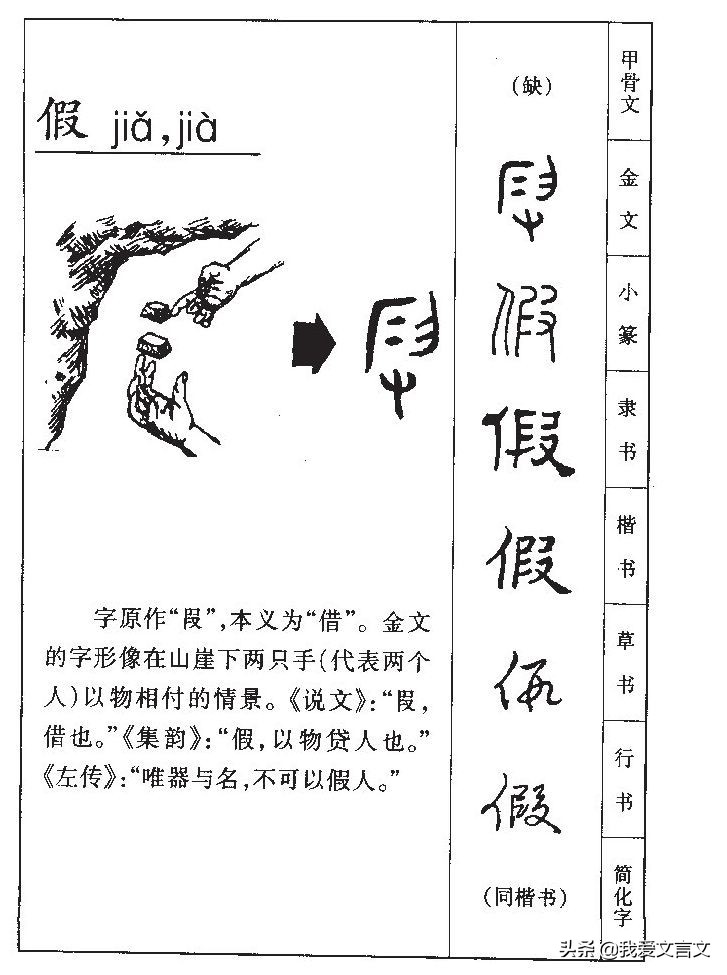 假 jiǎ,jià
字原作“叚”,本义为“借”。金文
的字形像在山崖下两只手(代表两个
人)以物相付的情景。《说文》:“叚,
借也。”《集韵》:“假,以物贷人也。”
《左传》:“唯器与名,不可以假人。”
(缺)
叚
假
假
假
假
假
(同楷书)
甲骨文
金文
小篆
隶书
楷书
草书
行书
简化字
头条 @我爱文言文